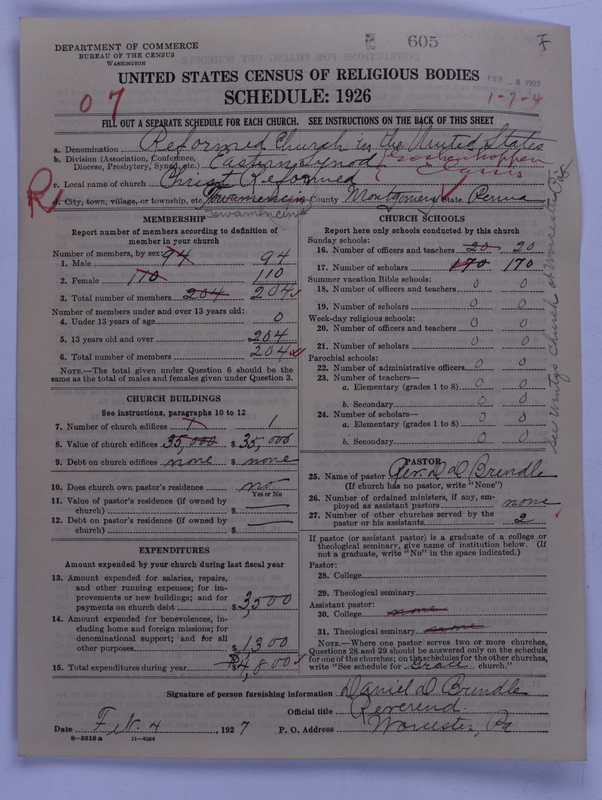 DEPARTMENT OF COMMERCE
BUREAU OF THE CENSUS
WASHINGTON
605
UNITED STATES CENSUS OF RELIGIOUS BODIES
FEB 8 1927
SCHEDULE: 1926
07
1-7-4
FILL OUT A SEPARATE SCHEDULE FOR EACH CHURCH. SEE INSTRUCTIONS ON THE BACK OF THIS SHEET
a. Denomination Reformed Church in the United States
b. Division (Association, Conference, Diocese, Presbytery, Synod, etc.) Eastern Synod Goshenhoppen Classis
c. Local name of church Christ Reformed
R
d. City, town, village, or township, etc. Towamencin County Montgomery State Penna
Towamencin
MEMBERSHIP
Report number of members according to definition of
member in your church
Number of members, by sex:
1. Male 94 94
2. Female 110 110
3. Total number of members 204 204
Number of members under and over 13 years old:
4. Under 13 years of age 0
5. 13 years old and over 204
6. Total number of members 204
NOTE.—The total given under Question 6 should be the
same as the total of males and females given under Question 3.
CHURCH BUILDINGS
See instructions, paragraphs 10 to 12
7. Number of church edifices 1 1
8. Value of church edifices 35,000 $ 35,000
9. Debt on church edifices none $ none
10. Does church own pastor's residence no
Yes or No
11. Value of pastor's residence (if owned by
church) $
12. Debt on pastor's residence (if owned by
church) $
EXPENDITURES
Amount expended by your church during last fiscal year
13. Amount expended for salaries, repairs,
and other running expenses; for im-
provements or new buildings; and for
payments on church debt $ 3,500
14. Amount expended for benevolences, in-
cluding home and foreign missions; for
denominational support; and for all
other purposes $ 1300
15. Total expenditures during year $4,800
CHURCH SCHOOLS
Report here only schools conducted by this church
Sunday schools:
16. Number of officers and teachers 20 20
17. Number of scholars 170 170
Summer vacation Bible schools:
18. Number of officers and teachers 0 0
19. Number of scholars 0 0
Week-day religious schools:
20. Number of officers and teachers 0 0
21. Number of scholars 0 0
Parochial schools:
22. Number of administrative officers 0 0
23. Number of teachers—
a. Elementary (grades 1 to 8) 0 0
b. Secondary 0 0
24. Number of scholars—
a. Elementary (grades 1 to 8) 0 0
b. Secondary 0 0
PASTOR
25. Name of pastor Rev. D D Brindle
(If church has no pastor, write "None")
26. Number of ordained ministers, if any, em-
ployed as assistant pastors none
27. Number of other churches served by the
pastor or his assistants 2
If pastor (or assistant pastor) is a graduate of a college or
theological seminary, give name of institution below. (If
not a graduate, write "No" in the space indicated.)
Pastor:
28. College
29. Theological seminary
Assistant pastor:
30. College none
31. Theological seminary none
NOTE.—Where one pastor serves two or more churches,
Questions 28 and 29 should be answered only on the schedule
for one of the churches; on the schedules for the other churches,
write "See schedule for Grace church."
Signature of person furnishing information Daniel D Brindle
Official title Reverend
Date Feb. 4, 1927 P. O. Address Worcester, Pa
8-5518 a 11-9064
Church at Worcester, Pa.